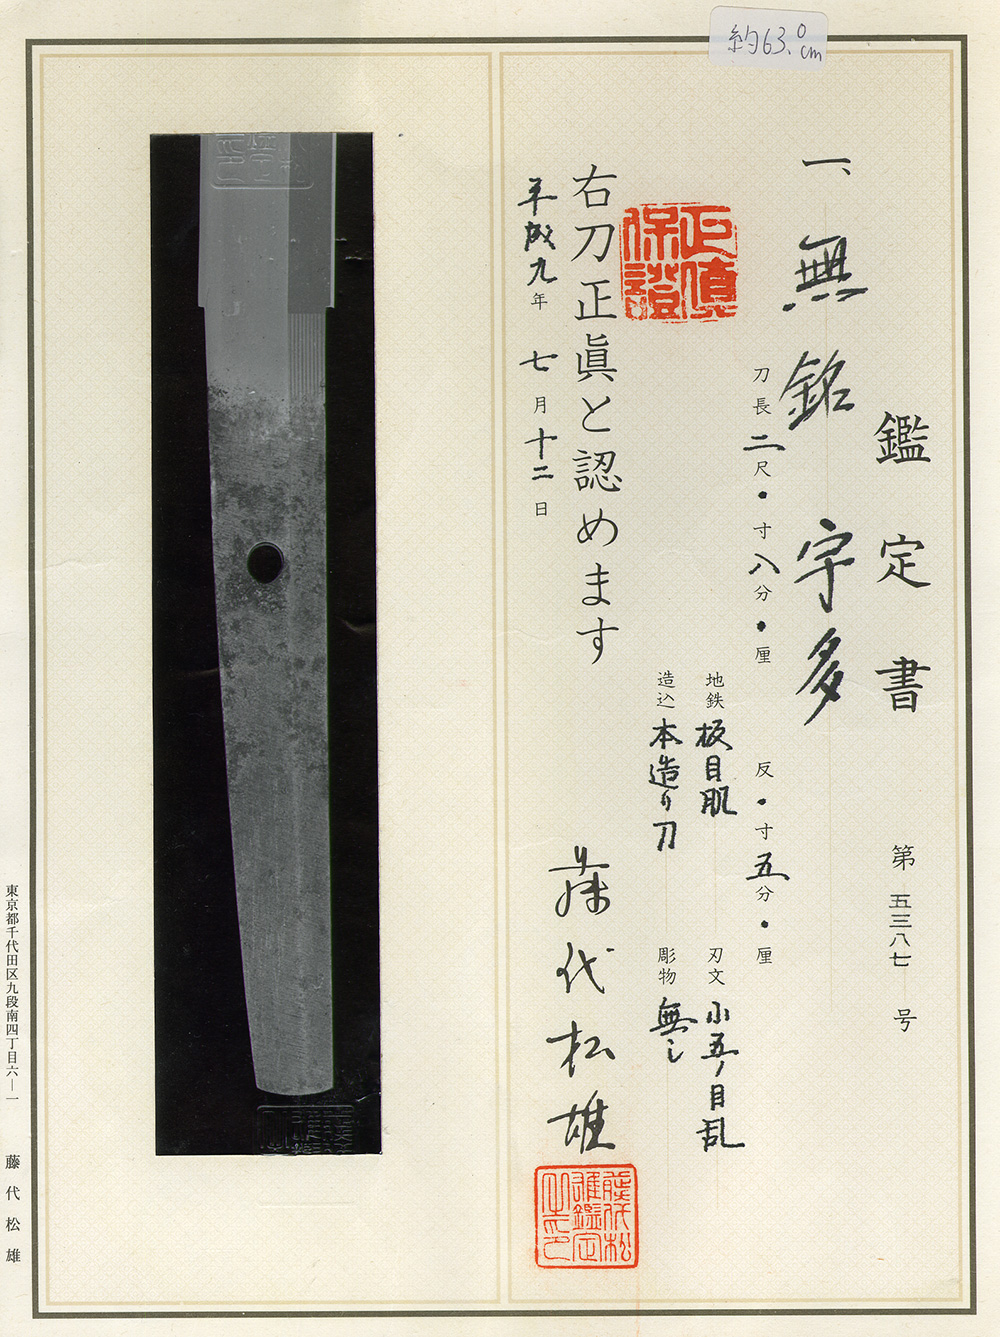 約63.0cm
鑑定書
第五三八七号
一、無銘 宇多
刀長二尺・寸八分・厘
反・寸五分・厘
地鉄 板目肌
刃文 小五ノ目乱
造込 本造り刀
彫物 無し
正真保證
右刀正眞と認めます
平成九年七月十二日
藤代松雄
藤代松雄鑑定之印
東京都千代田区九段南四丁目六―一 藤代松雄